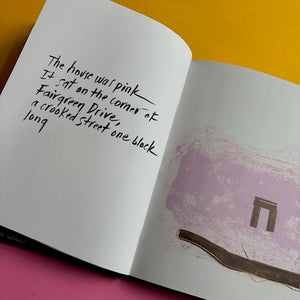 The house was pink
It sat on the corner of
Fairgreen Drive,
a crooked street one block
long